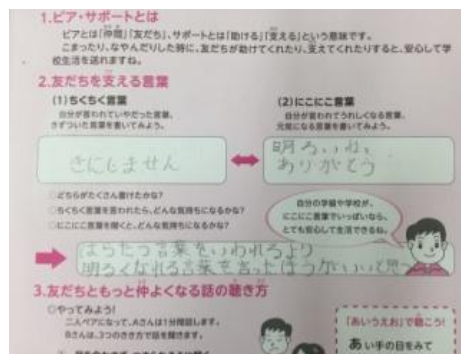 1.ピア・サポートとは
ピアとは「仲間」「友だち」、サポートとは「助ける」「支える」という意味です。
こまったり、なやんだりした時に、友だちが助けてくれたり、支えてくれたりすると、安心して学
校生活を送れますね。
2.友だちを支える言葉
(1)ちくちく言葉
自分が言われていやだった言葉、
きずついた言葉を書いてみよう。
(2)にこにこ言葉
自分が言われてうれしくなる言葉、
元気になる言葉を書いてみよう。
きにしません
明るいね
ありがとう
○どちらがたくさん書けたかな?
○ちくちく言葉を言われたら、どんな気持ちになるかな?
○にこにこ言葉を聞くと、どんな気持ちになるかな?
自分の学級や学校が、
にこにこ言葉でいっぱいなら、
とても安心して生活できるね。
はらたつ言葉をいわれるより
明るくなれる言葉を言ったほうがいいと思
3.友だちともっと仲よくなる話の聴き方
○やってみよう!
二人ペアになって、Aさんは1分間話します。
Bさんは、3つのきき方で話を聞きます。
「あいうえお」で聴こう!
あ い手の目をみて